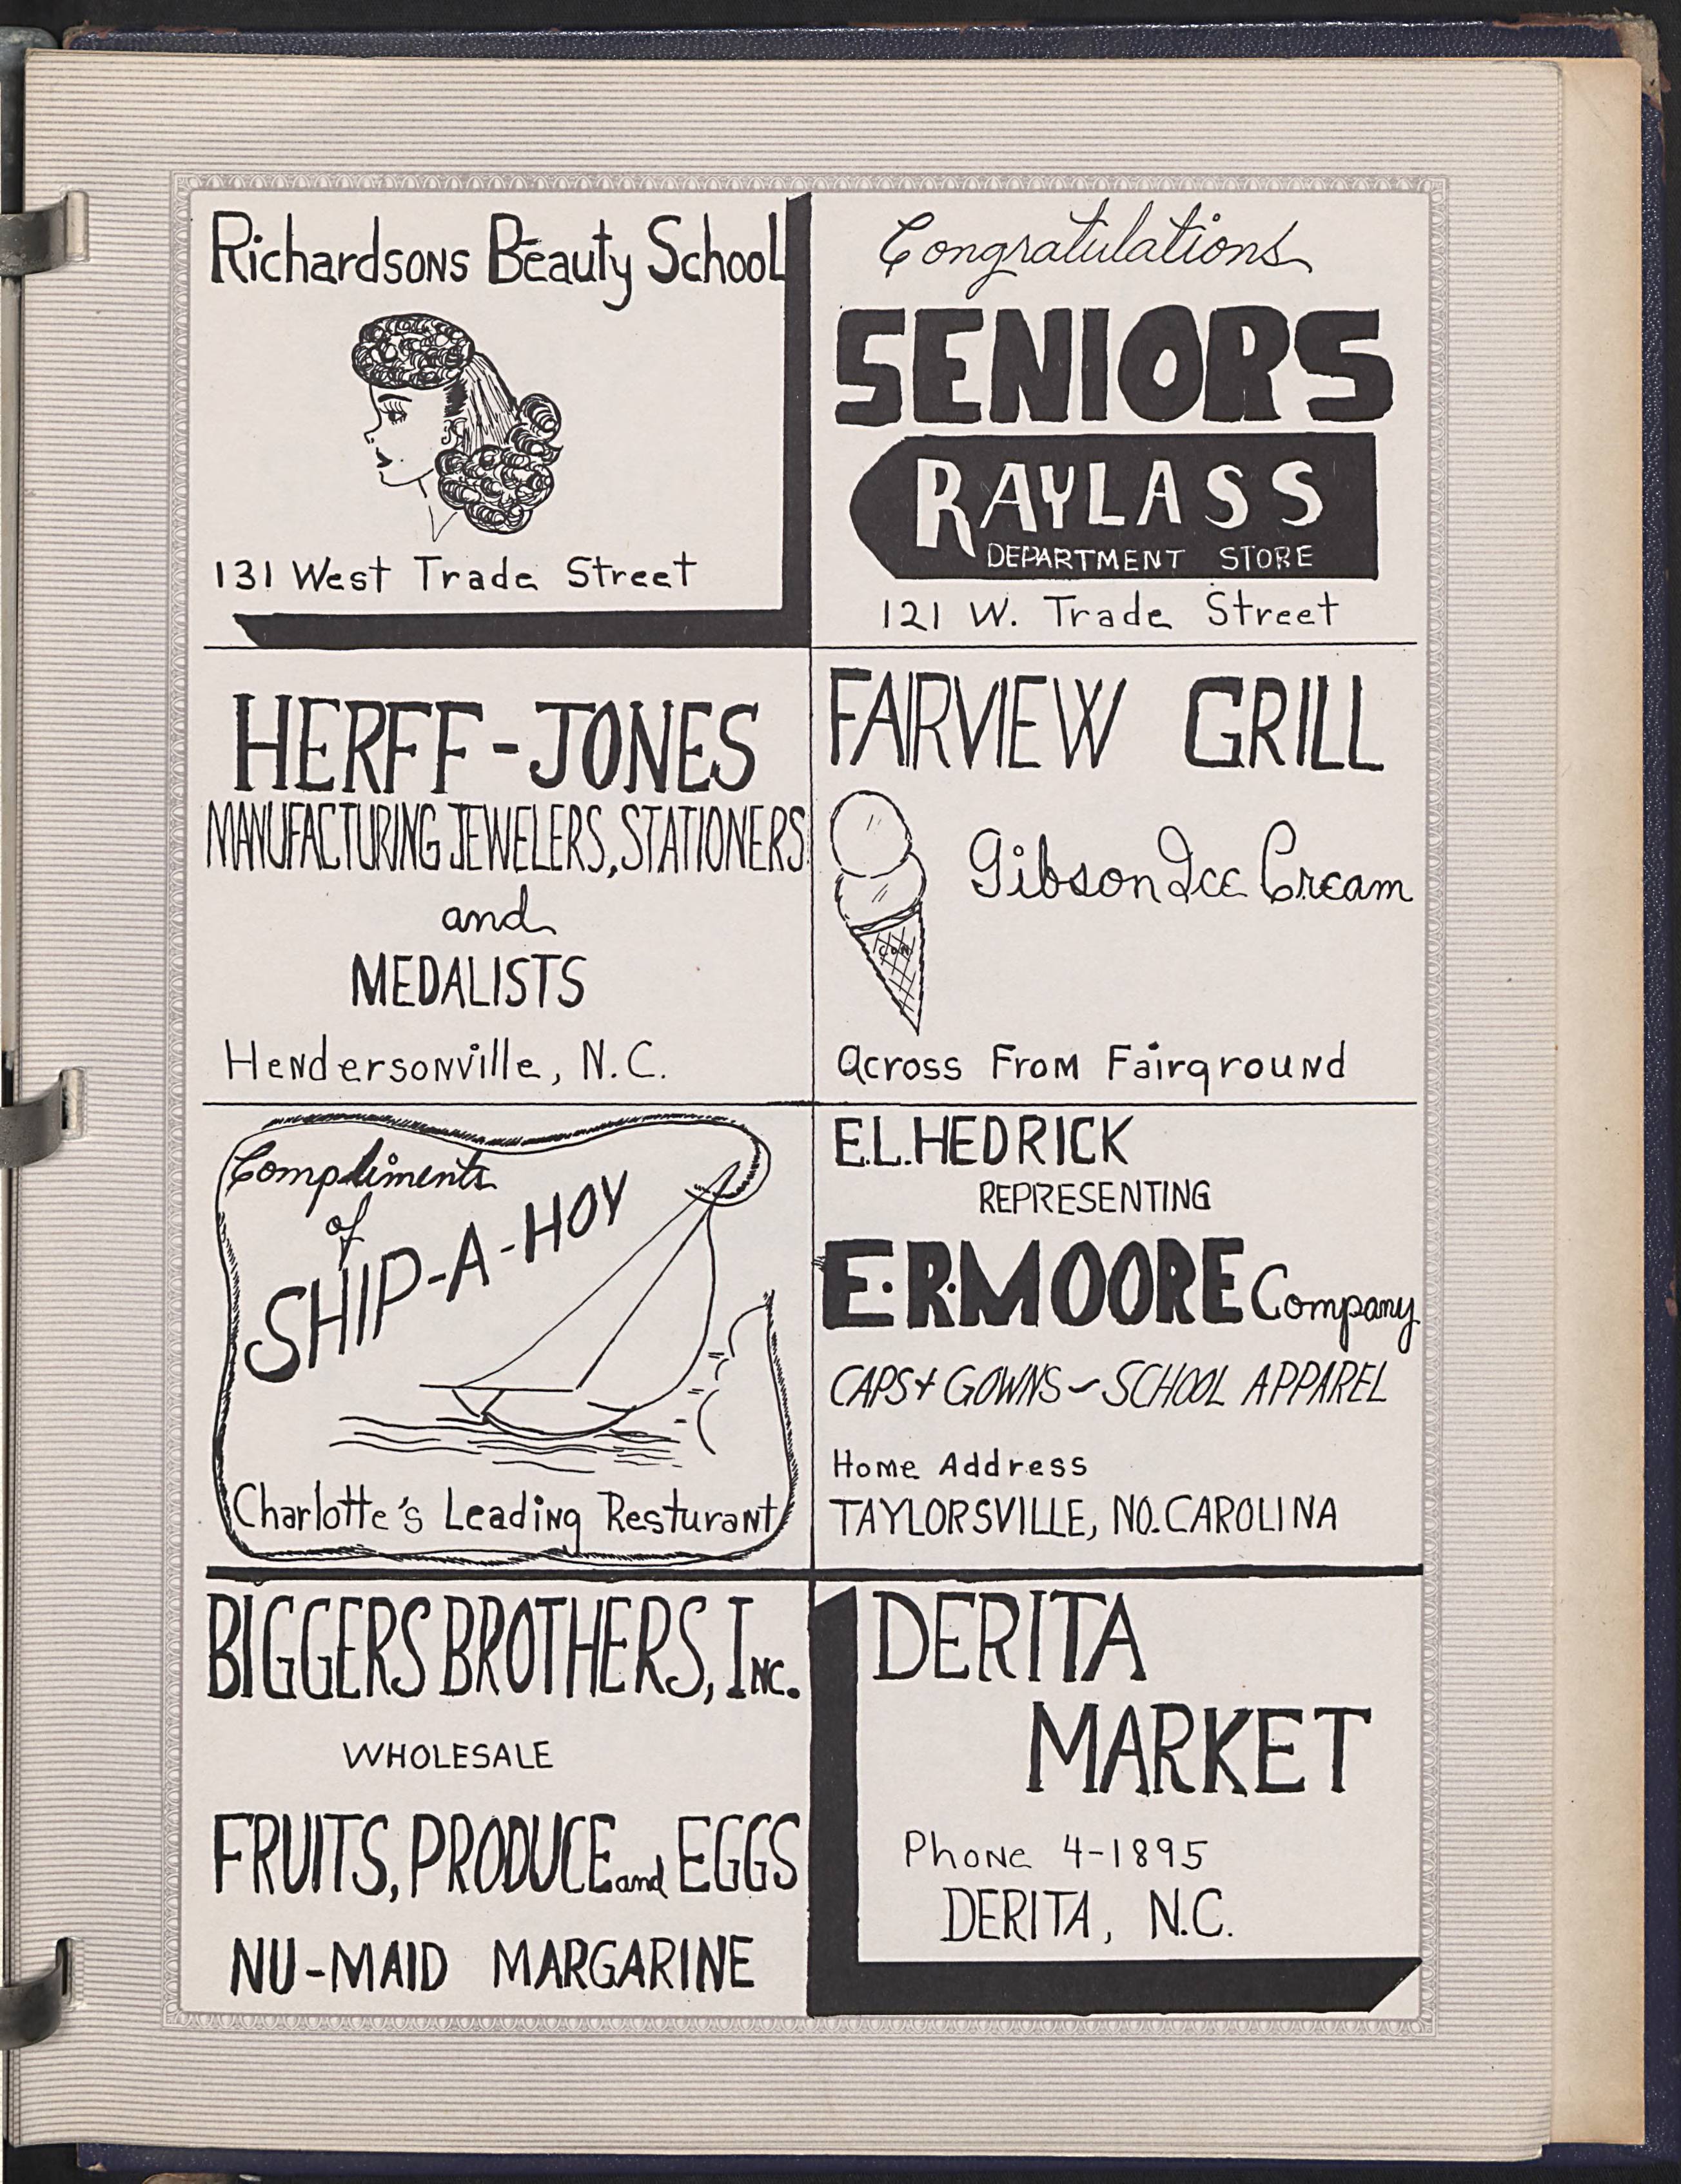 Richardsons Beauty School
131 West Trade Street
Congratulations
SENIORS
RAYLASS
DEPARTMENT STORE
121 W. Trade Street
HERFF-JONES
MANUFACTURING JEWELERS, STATIONERS
and
MEDALISTS
Hendersonville, N.C.
FAIRVIEW GRILL
Gibson Ice Cream
CON
Across From Fairground
Compliments
of
SHIP-A-HOY
Charlotte's Leading Resturant
E.L. HEDRICK
REPRESENTING
E.R. MOORE Company
CAPS + GOWNS - SCHOOL APPAREL
Home Address
TAYLORSVILLE, NO. CAROLINA
BIGGERS BROTHERS, INC.
WHOLESALE
FRUITS, PRODUCE and EGGS
NU-MAID MARGARINE
DERITA
MARKET
Phone 4-1895
DERITA, N.C.